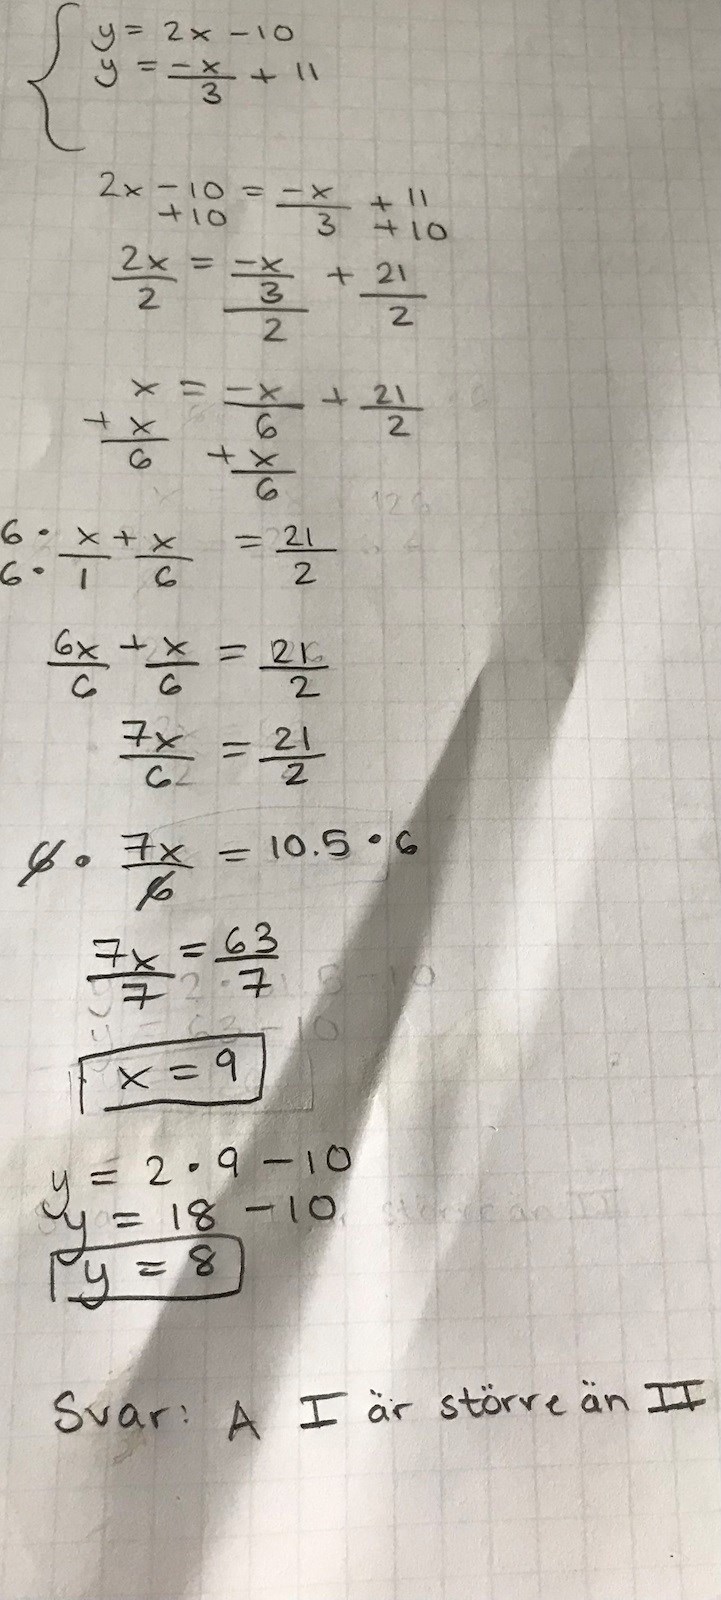 y = 2x - 10
y = -x/3 + 11
2x - 10 = -x/3 + 11
+10 +10
2x/2 = (-x/3)/2 + 21/2
x = -x/6 + 21/2
+ x/6 + x/6
6 · x/6 · 1 + x/6 = 21/2
6x/6 + x/6 = 21/2
7x/6 = 21/2
6 · 7x/6 = 10.5 · 6
7x/7 = 63/7
x = 9
y = 2 · 9 - 10
y = 18 - 10
y = 8
Svar: A I är större än II